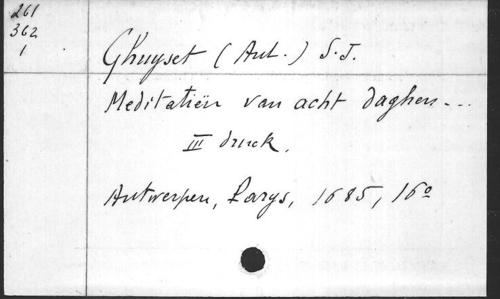 261
362
1
Ghuyset (Ant.) S.J.
Meditatiën van acht daghen...
III druck.
Antwerpen, Parys, 1685, 16º